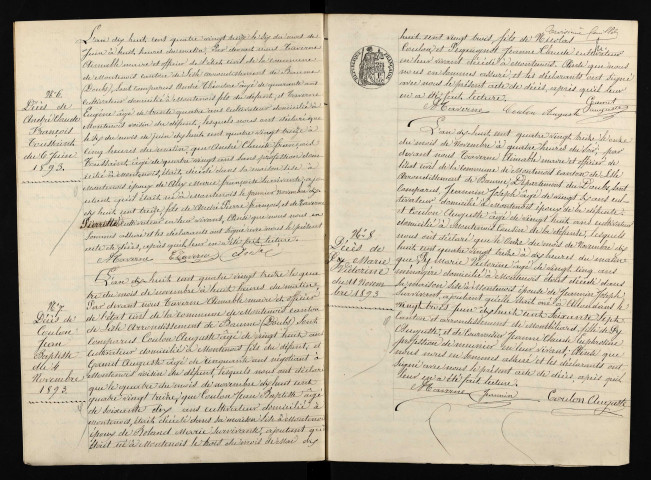 L'an dix huit cent quatre vingt treize le six du mois de
Juin à huit heures du matin, Par devant nous Taverne
Aimable maire et officier de l'état civil de la commune
de Montenois canton de Lisle arrondissement de Baume
(Doubs), sont comparus André Claudre âgé de quarante
ans cultivateur domicilié à Montenois fils du défunt, et Taverne
Eugène âgé de trente quatre ans cultivateur domicilié à
Montenois voisin du défunt, lesquels nous ont déclaré que
le six du mois de juin dix huit cent quatre vingt treize à
cinq heures du matin, que André Claude françois
âgé de quatre vingt ans sans profession domi
cilié à Montenois, était décédé dans sa maison sise à
Montenois époux de Marie françoise
dix huit cent treize, fils de André Pierre françois et de Taverne
Pierrette cultivateur en leur vivant, Ainsi que nous nous en
sommes assuré et les déclarants ont signé avec nous le présent
acte de décès, après qu'il leur en a été fait lecture.
A Taverne Taverne André
N° 6
Décès de
André Claude
François
du 6 Juin
1893.
L'an dix huit cent quatre vingt treize le qua
tre du mois de novembre à huit heures du matin,
Par devant nous Taverne Aimable maire et officier
de l'état civil de la commune de Montenois canton
de Lisle Arrondissement de Baume (Doubs) sont
comparus Coulon Auguste âgé de vingt huit ans
cultivateur domicilié à Montenois fils du défunt, et
Grand Auguste âgé de cinquante ans négociant à
Montenois voisin du défunt, lesquels nous ont déclaré
que le quatre du mois de novembre dix huit cent
quatre vingt treize, que Coulon Jean Baptiste âgé
de soixante dix ans cultivateur domicilié à
Montenois, était décédé dans sa maison sise à Montenois
époux de Marie survivante, ajoutant qu'il
était né à Montenois le trois du mois de Mai dix
N° 7
Décès de
Coulon
Jean
Baptiste
du 4
Novembre
1893
huit cent vingt trois, fils de Nicolas
Coulon et Jeanne Claude cultivateur
en leur vivant décédés à Montenois. Ainsi que nous
nous en sommes assuré, et les déclarants ont signé
avec nous le présent acte de décès, après qu'il leur
en a été fait lecture.
A Taverne Coulon Auguste
REPUBLIQUE FRANÇAISE
L'an dix huit cent quatre vingt treize le onze
du mois de Novembre à quatre heures du soir, par
devant nous Taverne Aimable maire et officier de
l'état civil de la commune de Montenois canton de Lisle
Arrondissement de Baume, Département du Doubs, sont
comparus Joseph âgé de vingt ans cul
tivateur domicilié à Montenois époux de la défunte
et Coulon Auguste âgé de vingt huit ans cultivateur
domicilié à Montenois cousin de la défunte, lesquels
nous ont déclaré que le onze du mois de Novembre dix
huit cent quatre vingt treize à dix heures du matin
que Marie Victorine âgée de vingt cinq ans
ménagère domiciliée à Montenois était décédée dans
sa maison sise à Montenois épouse de Joseph
survivant, ajoutant qu'elle était née à
le
vingt trois Juin dix huit cent soixante sept
canton et arrondissement de Montbéliard, fille de
Auguste, et de Jeanne Claude Euphrasine
profession de meunier leur vivant, Ainsi que
nous nous en sommes assuré et les déclarants ont
signé avec nous le présent acte de décès, après qu'il
leur en a été fait lecture.
A Taverne Coulon Auguste
N° 8
Décès de
Marie
Victorine
du 11 Novem
bre 1893